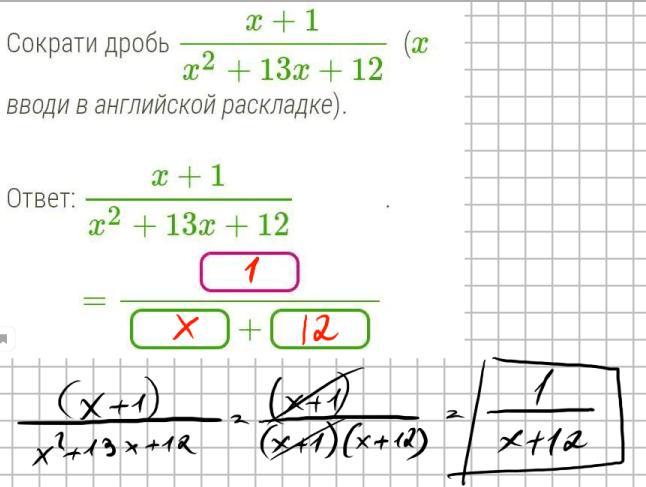 Сократи дробь (x + 1)/(x² + 13x + 12) (x
вводи в английской раскладке).
Ответ: (x + 1)/(x² + 13x + 12) .
= 1/(x + 12)
(x+1)/(x²+13x+12) = (x+1)/((x+1)(x+12)) = 1/(x+12)